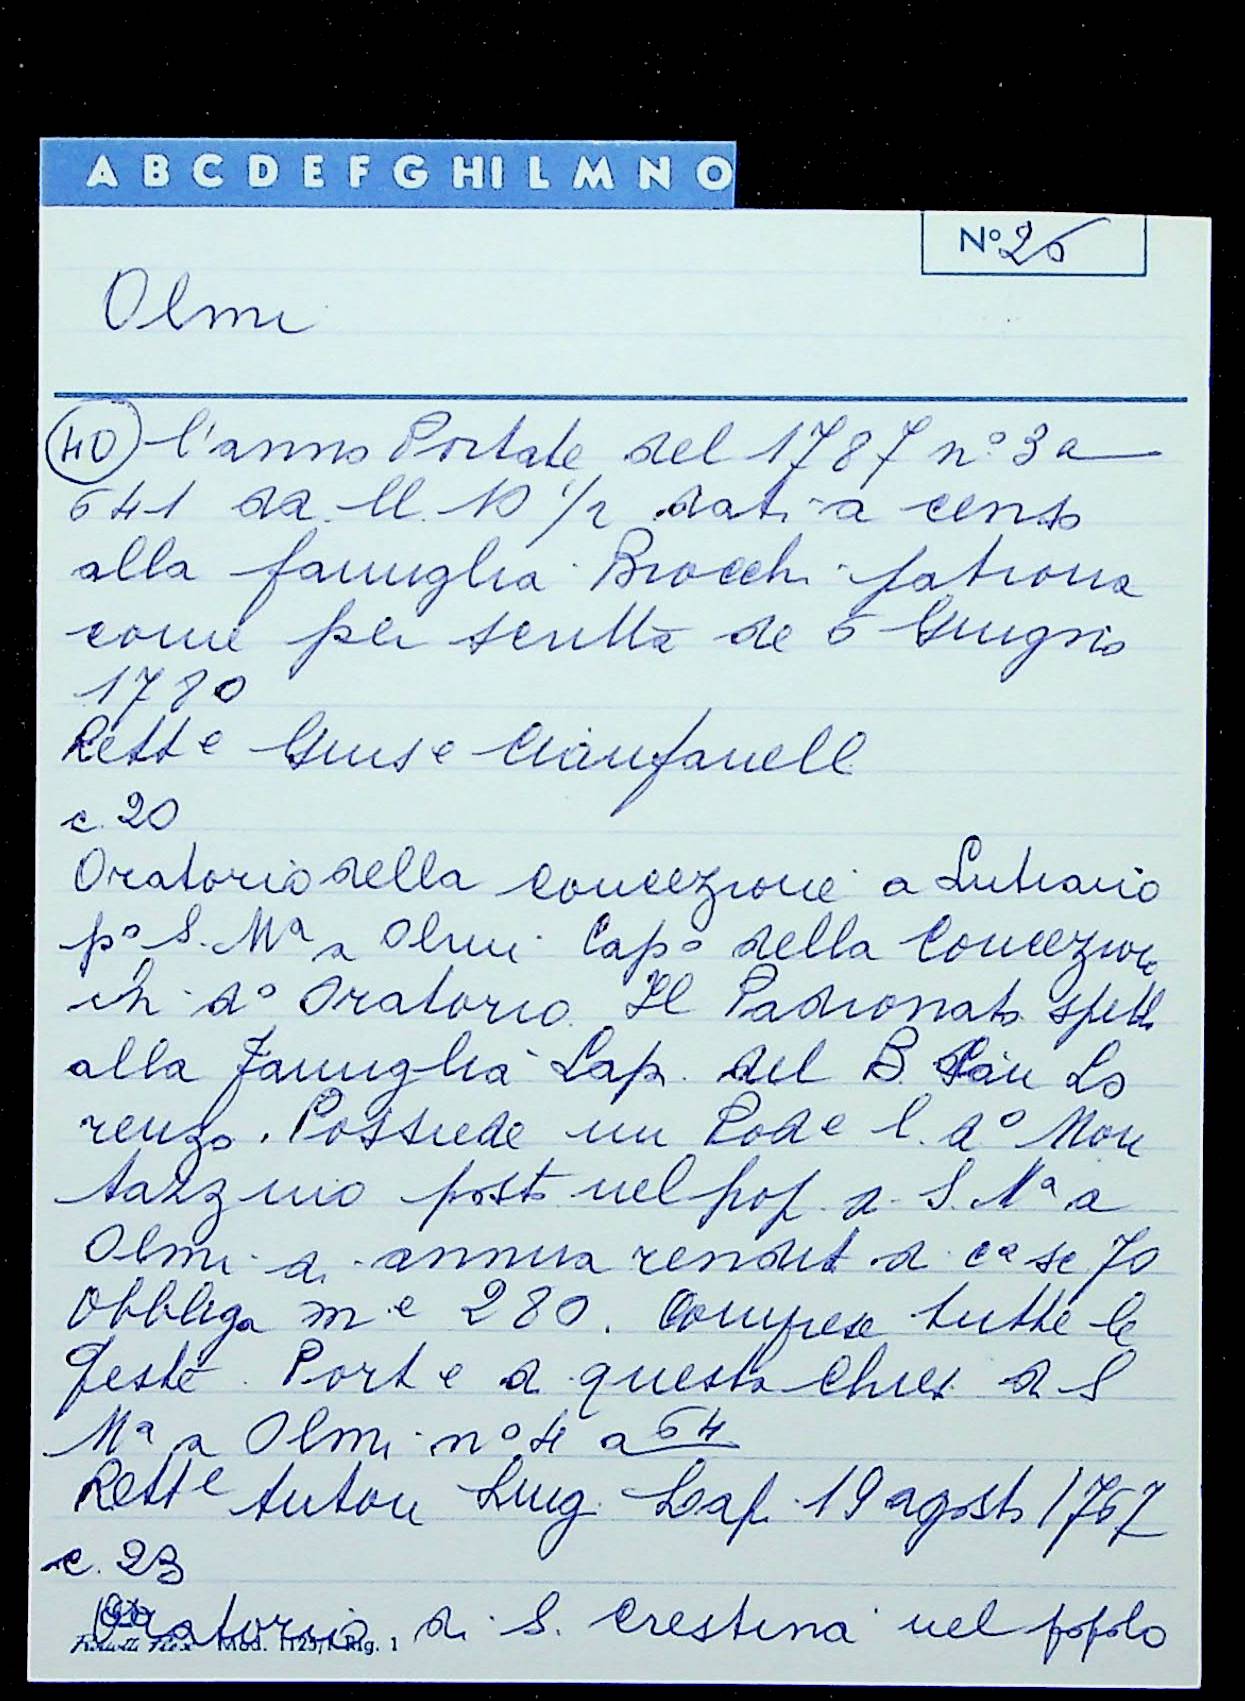 A B C D E F G HI L M N O
N° 26
Olmi
40 l'anno Portate del 1787 n° 3 a
641 da ll. 10 1/2 dati a censo
alla famiglia Brocchi patrona
come per scritta de 6 Giugno
1780
Rett e Gius e Cianfanell
c. 20
Oratorio della Concezione a Lutiano
p° S. Mª a Olmi Cap° della Concezione
in d° Oratorio. Il Padronato spett
alla Famiglia Lapi del B. San Lo
renzo. Possiede un Pode l. d° Mon
tazzino posto nel pop. d. S. Mª a
Olmi di annua rendit d. ca sc. 70
Obbliga m e 280. Comprese tutte le
Feste. Port e d questa Chies di S
Mª a Olmi n° 4 a 64
Rett e Anton Luig. Lapi 19 agosto 1767
c. 23
Oratorio di S. Crestina nel popolo
Mod. Rig. 1